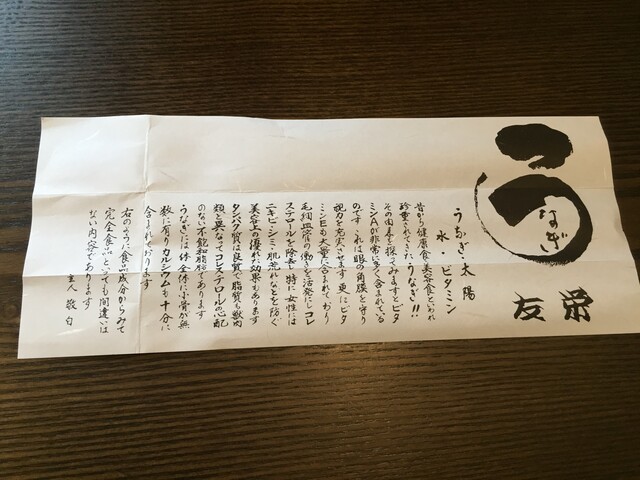 うなぎ
友栄
うなぎ・太陽
水・ビタミン
昔から健康食・美容食といわれ
珍重されてきた、うなぎ!!
その内容を探ってみますとビタ
ミンAが非常に多く含まれている
のです これは眼の角膜を守り
視力を充実させます 更にビタ
ミンEも大量に含まれており
毛細血管の働きを活発にしコレ
ステロールを除去し特に女性には
ニキビ・シミ・肌荒れなどを防ぐ
美容上の優れた効果もあります
タンパク質は良質で脂質も獣肉
類と異なってコレステロールの心配
のない不飽和脂肪であります
うなぎには一体全体、小骨が無
数に有りカルシュムも十分に
含まれております
右のように食品成分からみて
完全食品といっても間違いは
ない内容であります
主人 敬白